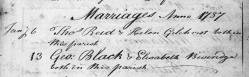 Marriages Anno 1737
Jan. 6 Tho.s Reid & Helen Gilchrist both in
this parish
13 Geo: Black & Elizabeth
both in this parish